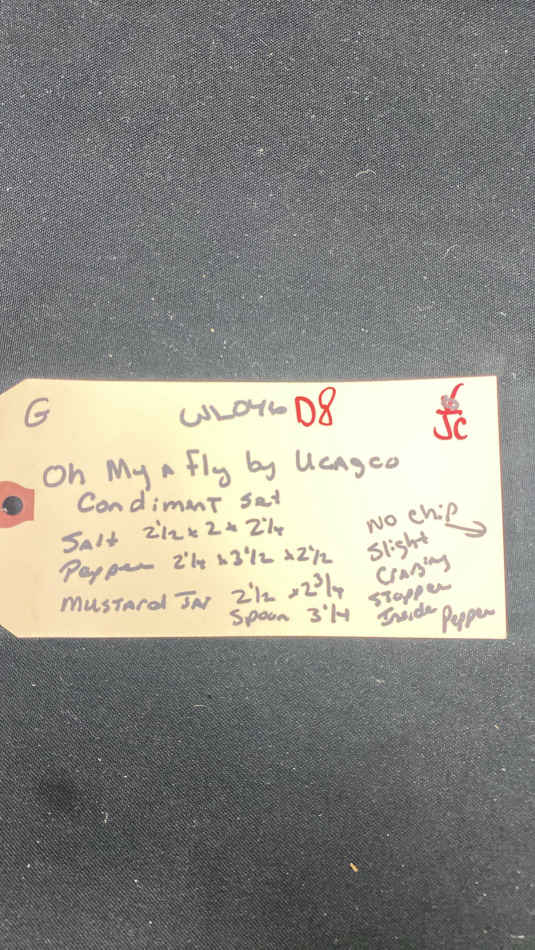 G WL046 D8 JC
Oh My A Fly by UCAgco
Condiment Set
Salt 2 1/2 x 2 x 2 1/4
Pepper 2 1/4 x 3 1/2 x 2 1/2
Mustard Jar 2 1/2 x 2 3/4
Spoon 3 1/4
No chip
Slight
Crazing
Stopper
Inside Pepper